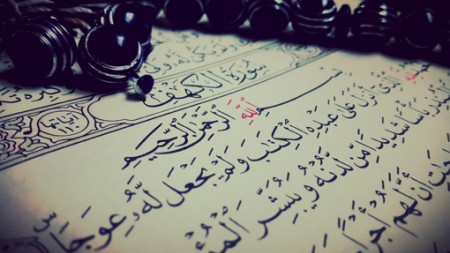 سُورَةُ الْكَهْفِ
بِسْمِ اللَّهِ الرَّحْمَٰنِ الرَّحِيمِ
الَّذِي أَنْزَلَ عَلَىٰ عَبْدِهِ الْكِتَٰبَ وَلَمْ يَجْعَل لَّهُ عِوَجَا
بَأْسًا شَدِيدًا مِّن لَّدُنْهُ وَيُبَشِّرَ الْمُؤْ
أَنَّ لَهُمْ أَجْرًا